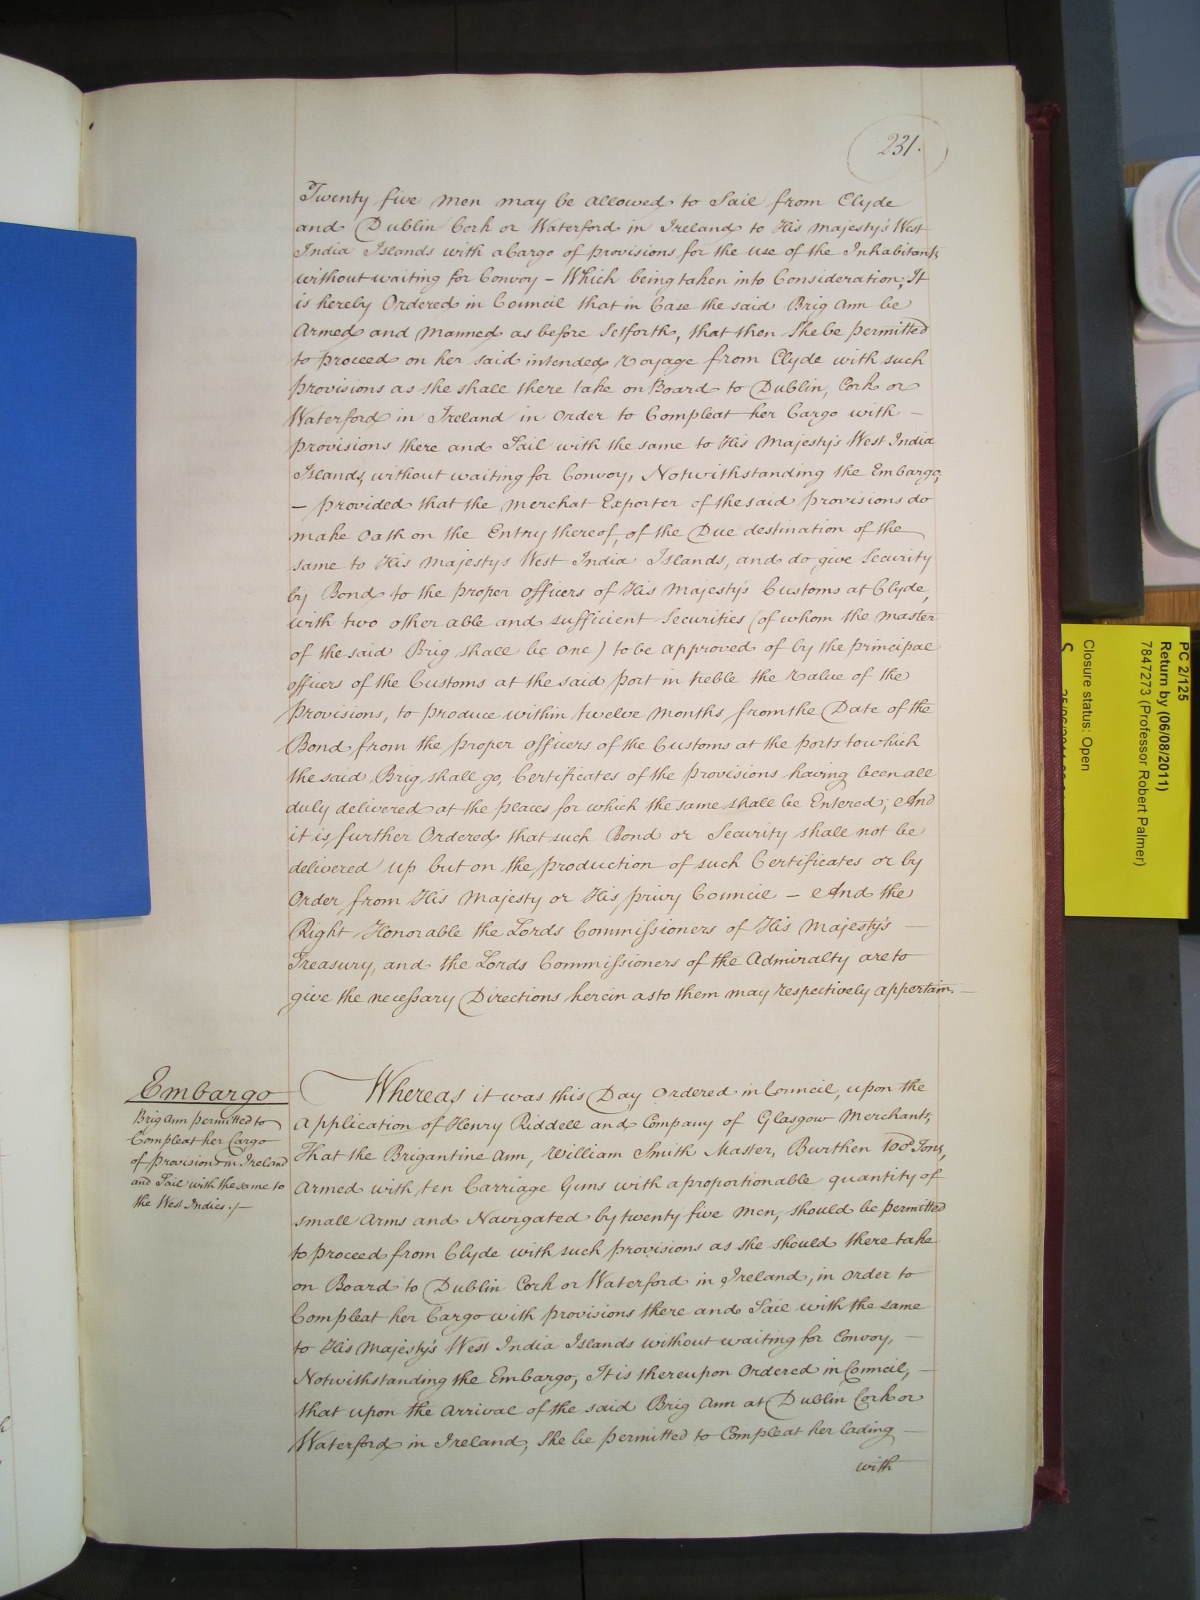 231.
Twenty five men may be allowed to Sail from Clyde
and Dublin Cork or Waterford in Ireland to His Majesty's West
India Islands with a Cargo of provisions for the use of the Inhabitants
without waiting for Convoy – Which being taken into Consideration; It
is hereby Ordered in Council that in Case the said Brig Ann be
Armed and Manned as before Setforth, that then She be permitted
to proceed on her said intended Voyage from Clyde with such
provisions as she shall there take on Board to Dublin, Cork or
Waterford in Ireland in Order to Compleat her Cargo with –
provisions there and Sail with the same to His Majesty's West India
Islands, without waiting for Convoy, Notwithstanding the Embargo,
– provided that the Merchat Exporter of the said provisions do
make Oath on the Entry thereof, of the Due destination of the
same to His Majestys West India Islands, and do give Security
by Bond to the proper officers of His Majesty's Customs at Clyde,
with two other able and sufficient Securities (of whom the master
of the said Brig shall be one) to be approved of by the principal
officers of the Customs at the said port in treble the Value of the
Provisions, to produce within twelve Months from the Date of the
Bond from the proper officers of the Customs at the ports to which
the said Brig shall go, Certificates of the provisions having been all
duly delivered at the places for which the same shall be Entered; And
it is further Ordered that such Bond or Security shall not be
delivered up but on the production of such Certificates or by
Order from His Majesty or His privy Council – And the
Right Honorable the Lords Commissioners of His Majesty's –
Treasury, and the Lords Commissioners of the Admiralty are to
give the necessary Directions herein as to them may respectively appertain. –
Embargo
Brig Ann permitted to
Compleat her Cargo
of provisions in Ireland
and Sail with the same to
the West Indies :/–
Whereas it was this Day Ordered in Council, upon the
Application of Henry Riddell and Company of Glasgow Merchants,
That the Brigantine Ann, William Smith Master, Burthen 100 Tons,
Armed with ten Carriage Guns with a proportionable quantity of
small Arms and Navigated by twenty five Men, should be permitted
to proceed from Clyde with such provisions as she should there take
on Board to Dublin Cork or Waterford in Ireland, in order to
Compleat her Cargo with provisions there and Sail with the same
to His Majesty's West India Islands without waiting for Convoy, –
Notwithstanding the Embargo, It is thereupon Ordered in Council, –
that upon the Arrival of the said Brig Ann at Dublin Cork or
Waterford in Ireland, She be permitted to Compleat her lading –
with
PC 2/125
Return by (06/08/2011)
7847273 (Professor Robert Palmer)
Closure status: Open